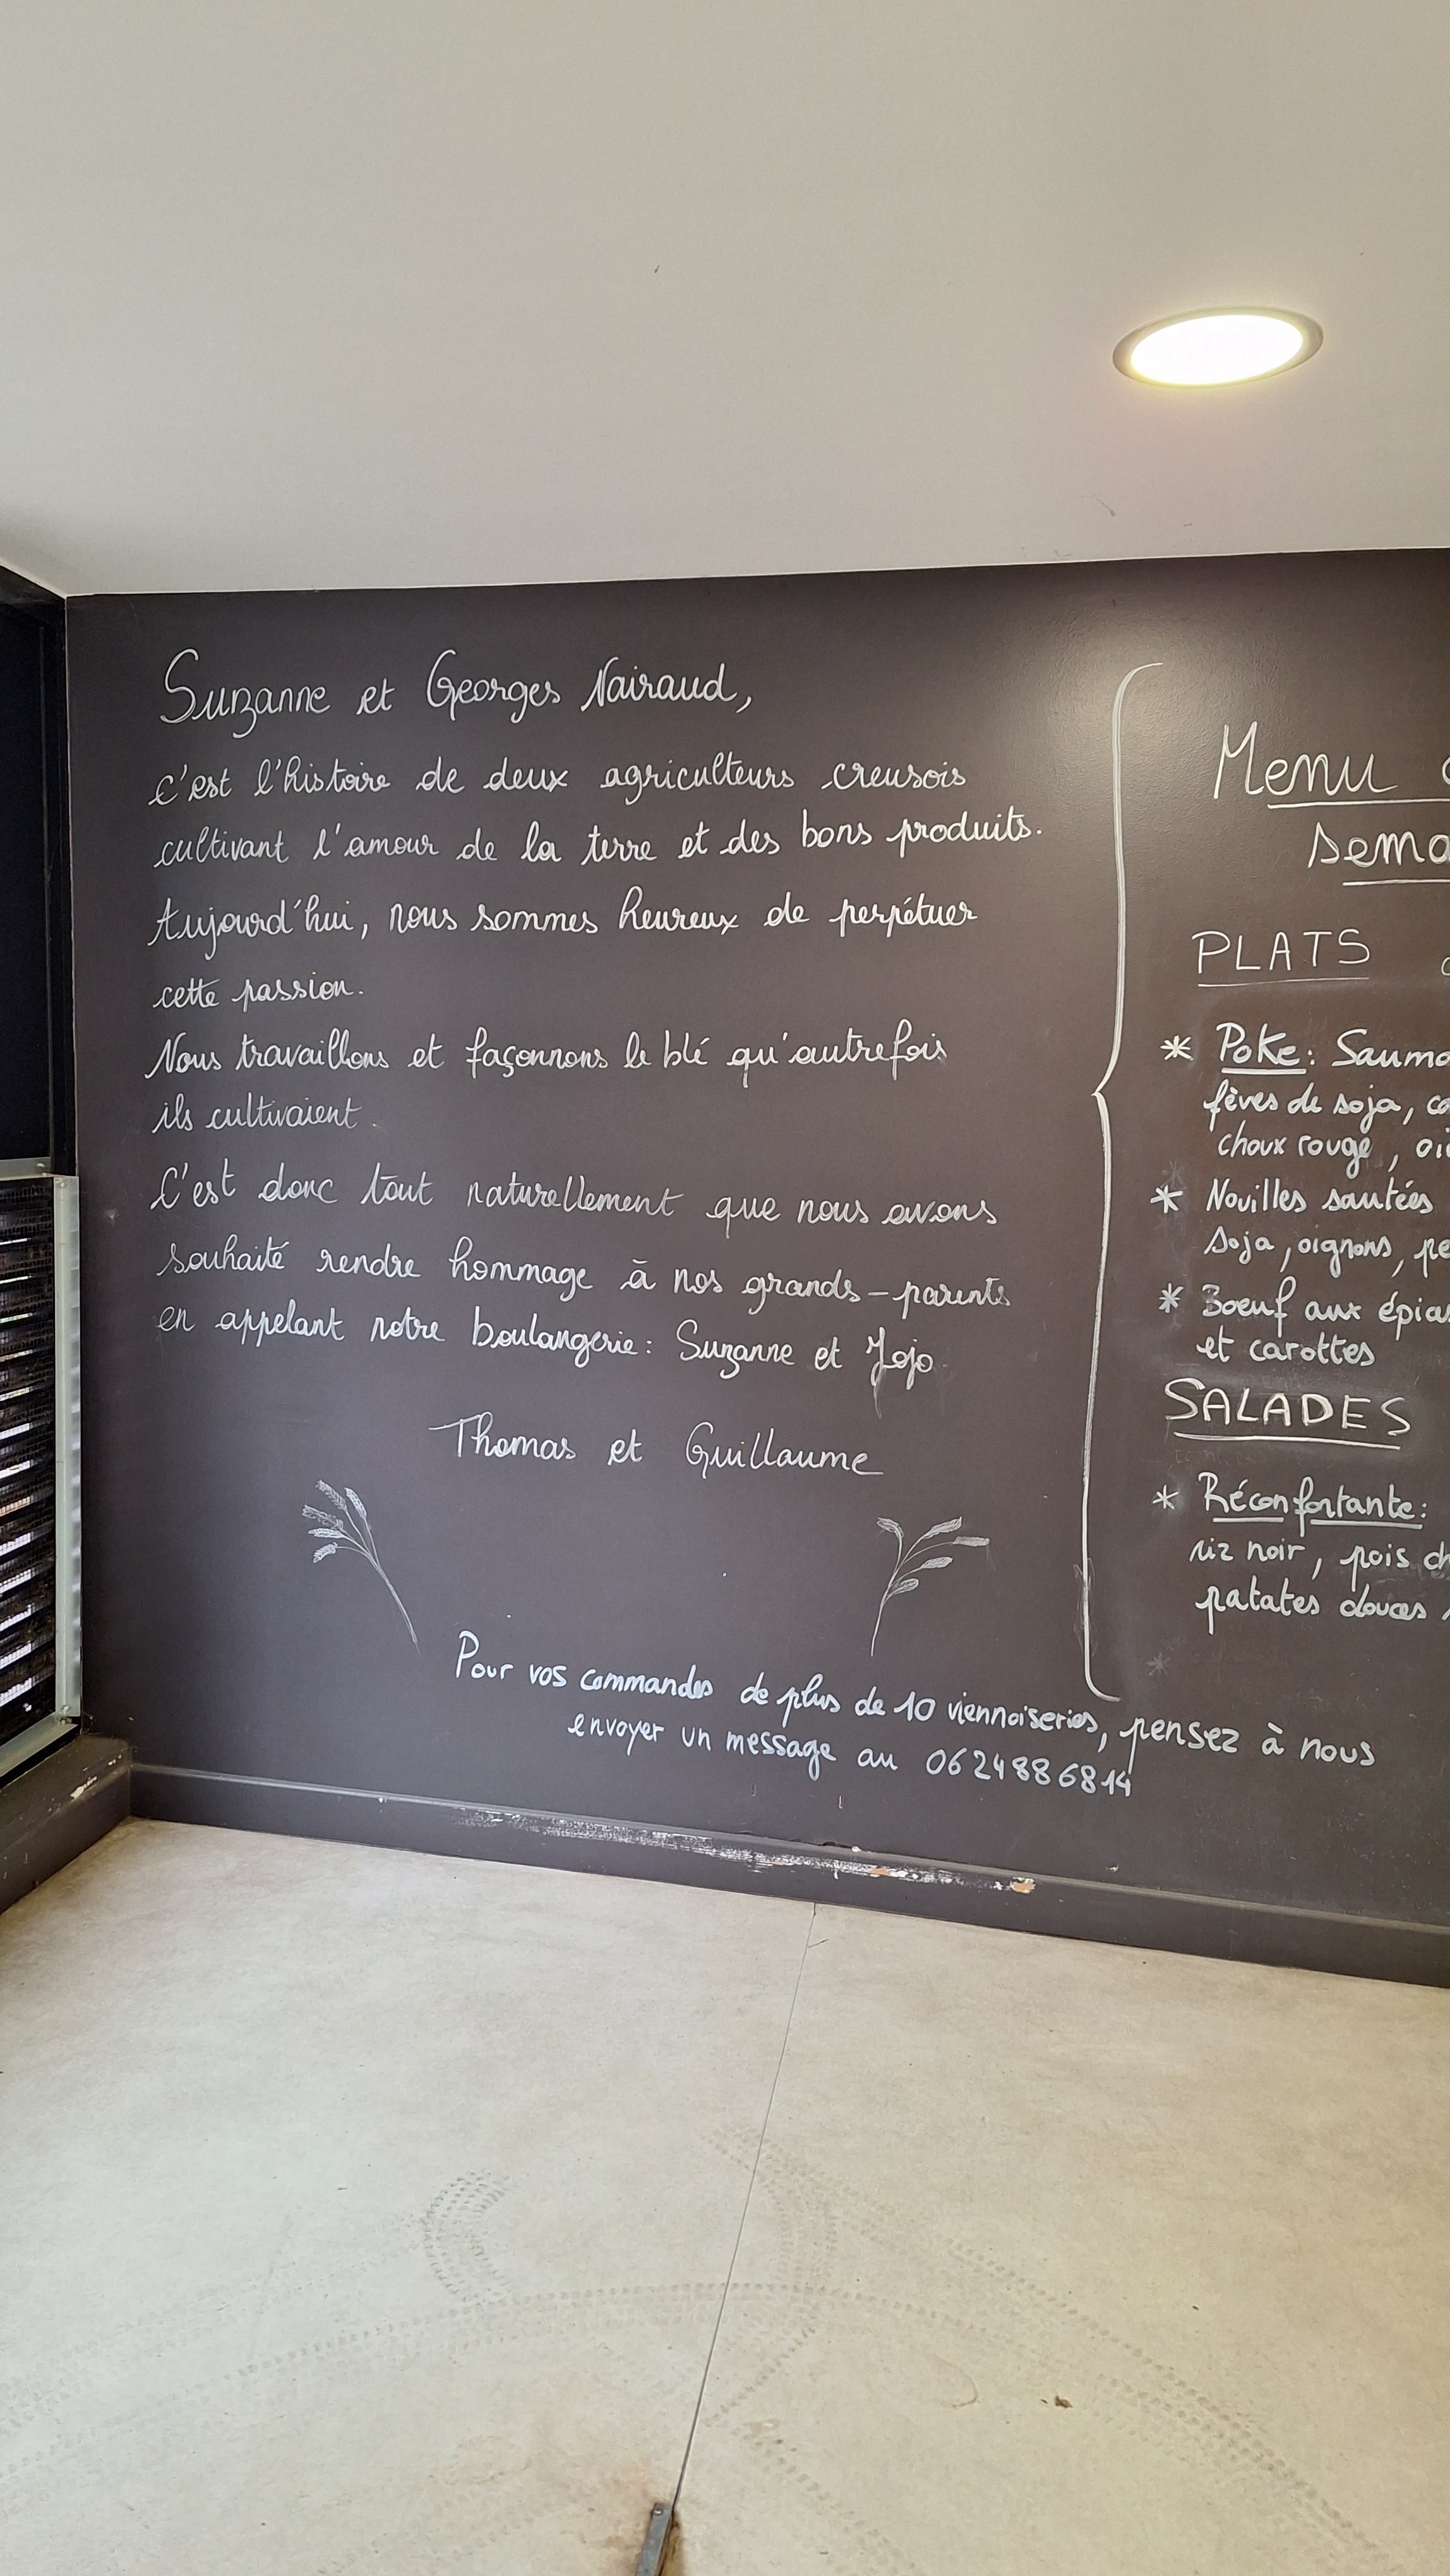 Suzanne et Georges Nairaud,
c'est l'histoire de deux agriculteurs creusois
cultivant l'amour de la terre et des bons produits.
Aujourd'hui, nous sommes heureux de perpétuer
cette passion.
Nous travaillons et façonnons le blé qu'autrefois
ils cultivaient.
C'est donc tout naturellement que nous avons
souhaité rendre hommage à nos grands-parents
en appelant notre boulangerie : Suzanne et Jojo
Thomas et Guillaume
Pour vos commandes de plus de 10 viennoiseries, pensez à nous
envoyer un message au 06 24 88 68 14
Menu
PLATS
* Poke : 
fèves de soja,
choux rouge,
* Nouilles sautées
soja, oignons,
* Boeuf aux
et carottes
SALADES
* Réconfortante :
riz noir, pois
patates douces